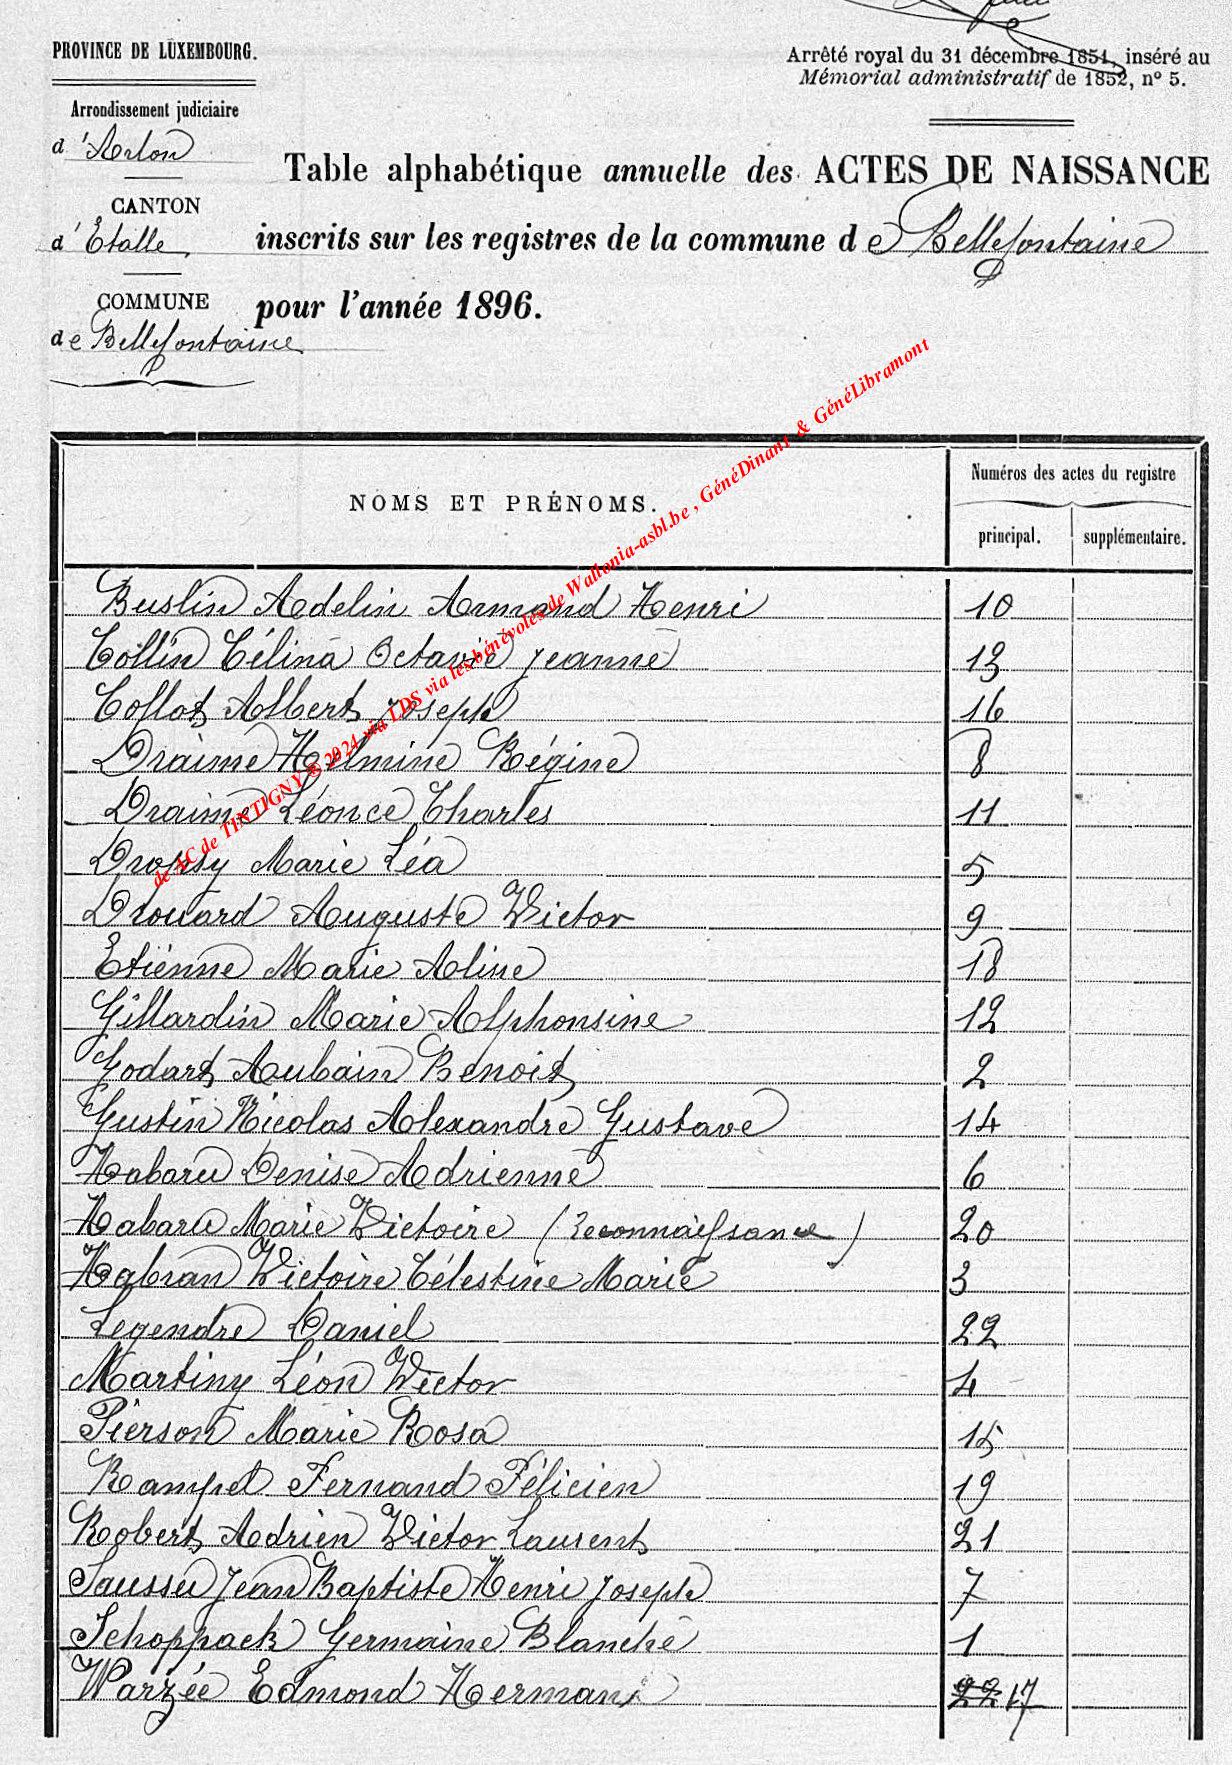 PROVINCE DE LUXEMBOURG.
Arrondissement judiciaire
d'Arlon
CANTON
d'Etalle
COMMUNE
de Bellefontaine
Arrêté royal du 31 décembre 1851, inséré au
Mémorial administratif de 1852, n° 5.
Table alphabétique annuelle des ACTES DE NAISSANCE
inscrits sur les registres de la commune de Bellefontaine
pour l'année 1896.
de AC de TINTIGNY @ 2024 via LDS via les bénévoles de Wallonia-asbl.be , GénéDinant & GénéLibramont
NOMS ET PRÉNOMS.
Numéros des actes du registre
principal. supplémentaire.
Buslin Adelin Armand Henri 10
Collin Célina Octavie Jeanne 13
Collot Albert Joseph 16
Draime Helmine Régine 8
Draime Léonce Charles 11
Dropsy Marie Léa 5
Drouard Auguste Victor 9
Etienne Marie Aline 18
Gillardin Marie Alphonsine 12
Godart Aubain Benoit 2
Gustin Nicolas Alexandre Gustave 14
Habaru Denise Adrienne 6
Habaru Marie Victoire (Reconnaissance) 20
Habran Victoire Célestine Marie 3
Legendre Daniel 22
Martiny Léon Victor 4
Pierson Marie Rosa 15
Rampel Fernand Félicien 19
Robert Adrien Victor Laurent 21
Saussu Jean Baptiste Henri Joseph 7
Schoppack Germaine Blanche 1
Warzée Edmond Herman 22 17